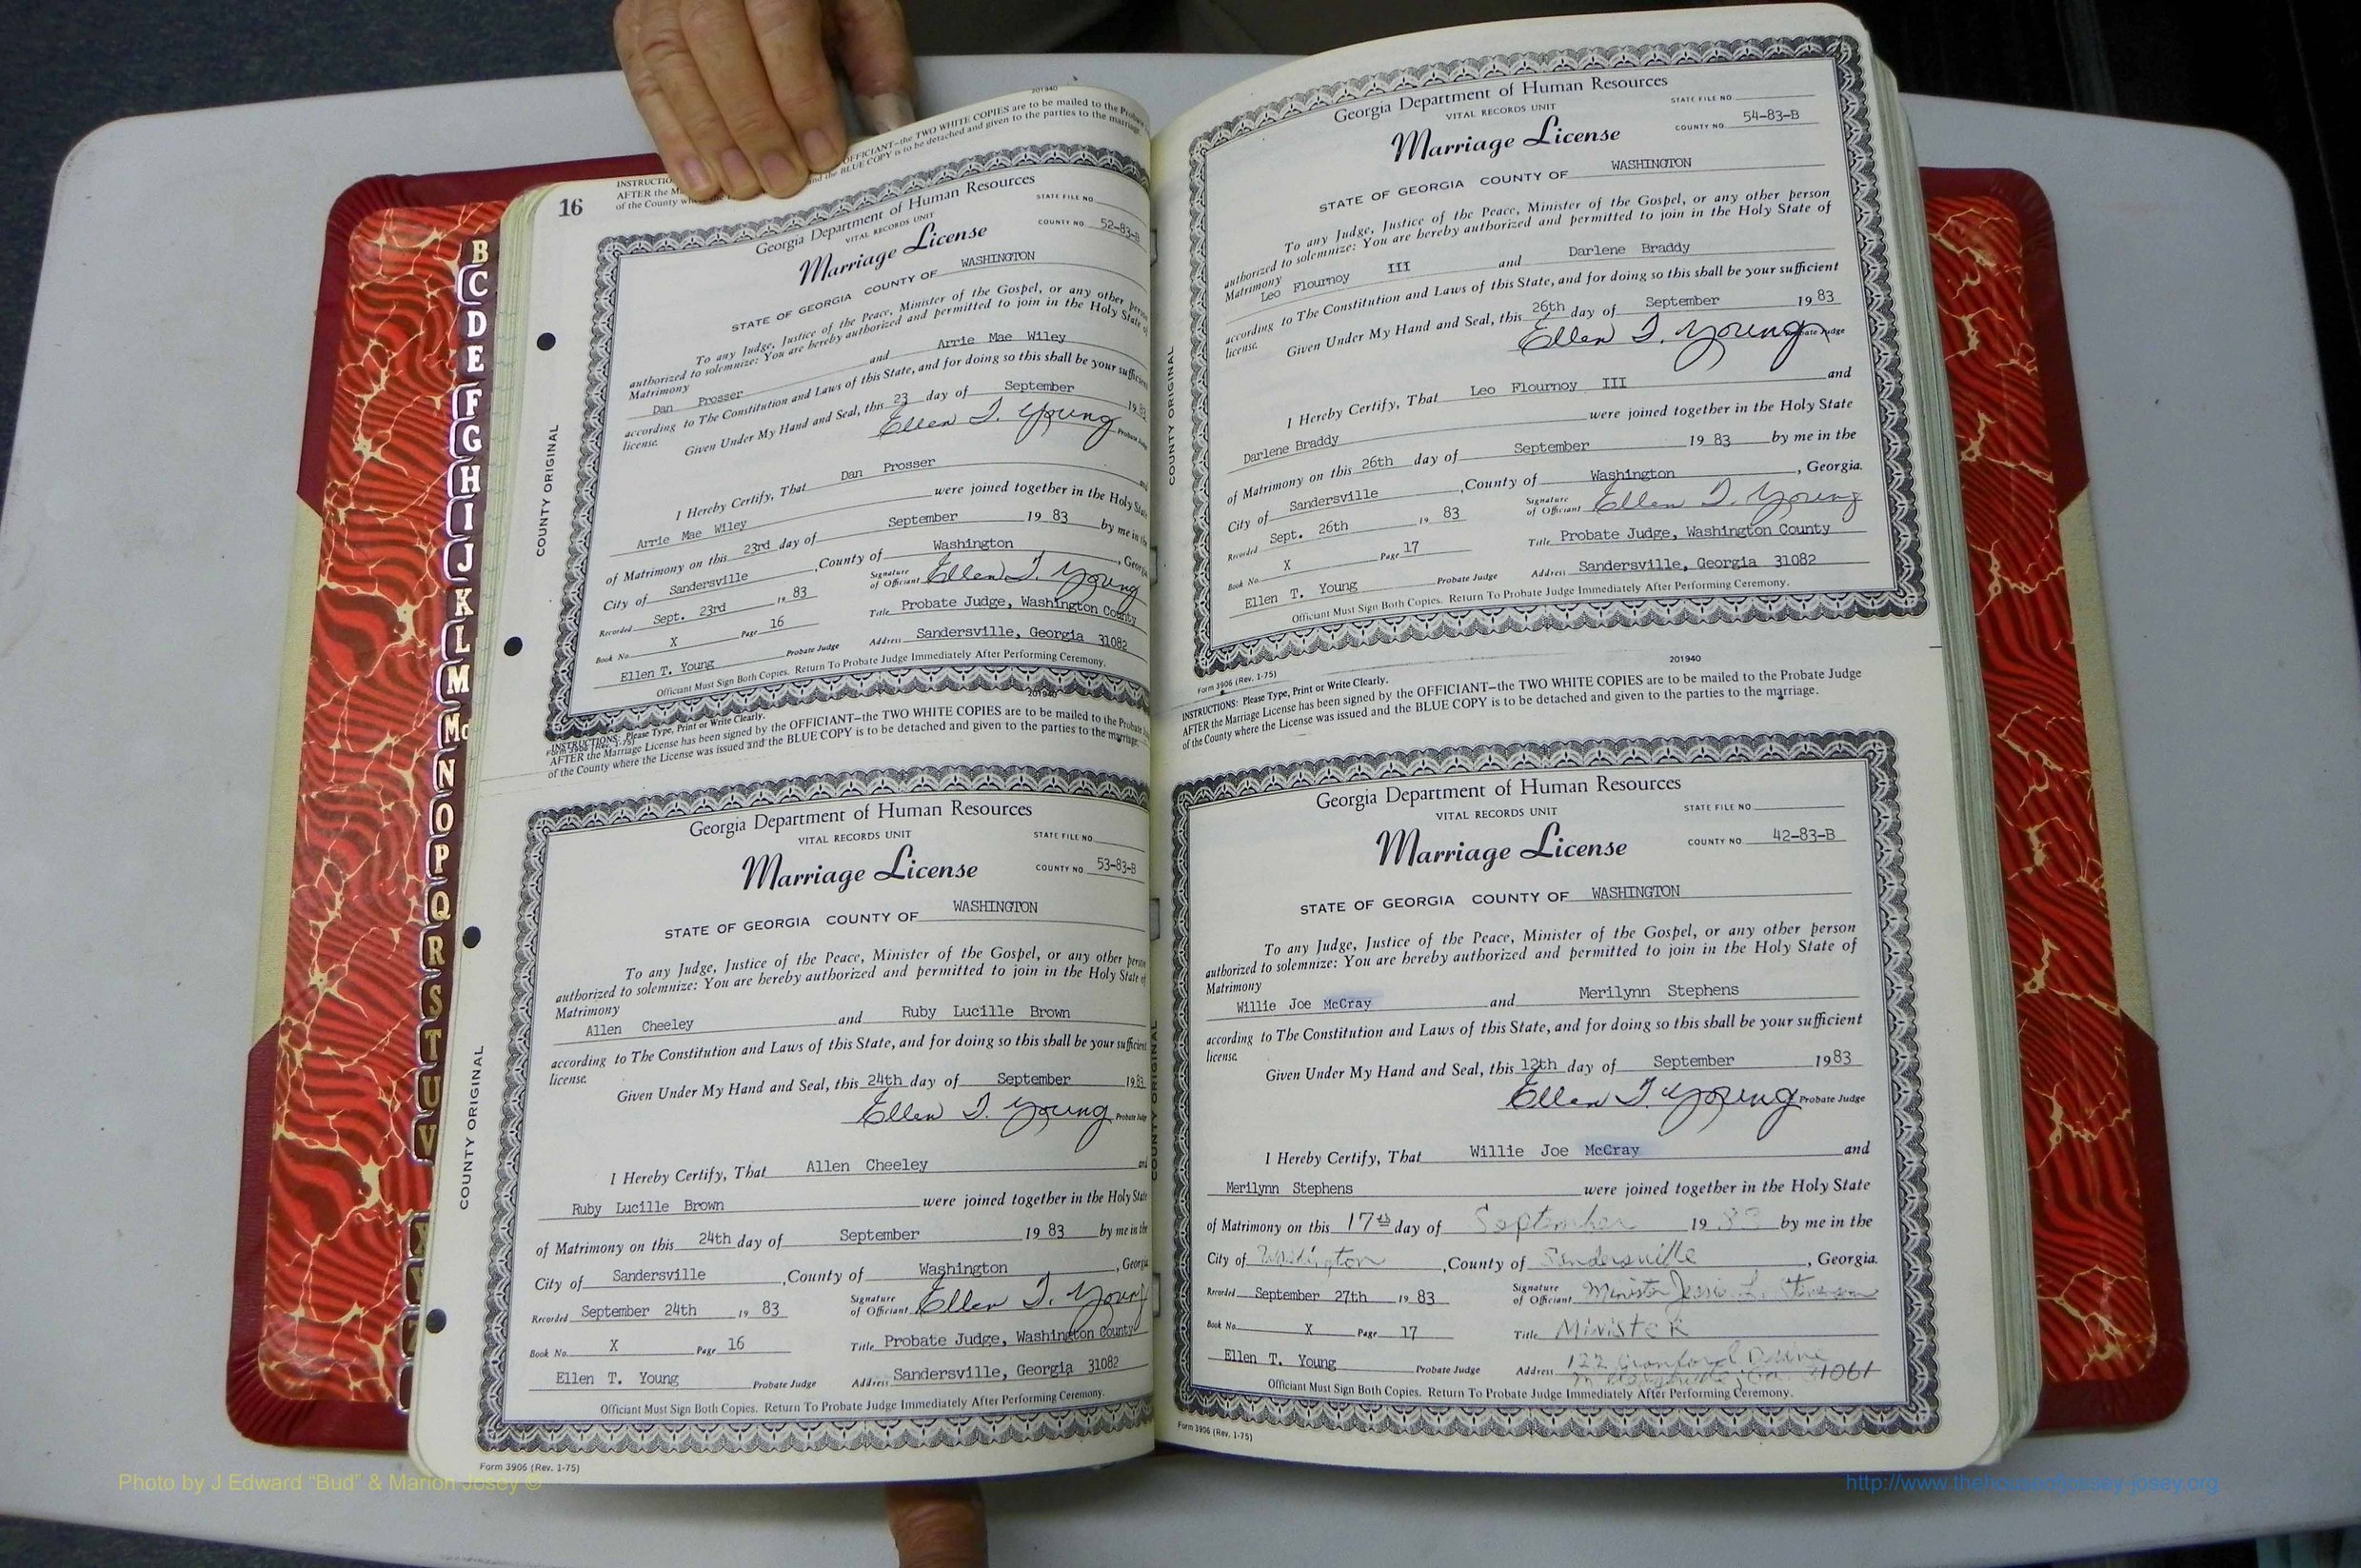 B
C
D
E
F
G
H
I
J
K
L
M
Mc
N
O
P
Q
R
S
T
U
V
16
201940
OFFICIANT—the TWO WHITE COPIES are to be mailed to the
and the BLUE COPY is to be detached and given to the parties to the marriage.
AFTER the
of the County
COUNTY ORIGINAL
Georgia Department of Human Resources
VITAL RECORDS UNIT
STATE FILE NO
Marriage License
COUNTY NO 52-83-B
STATE OF GEORGIA COUNTY OF WASHINGTON
To any Judge, Justice of the Peace, Minister of the Gospel, or any other person
authorized to solemnize: You are hereby authorized and permitted to join in the Holy State of
Matrimony
Dan Prosser and Arrie Mae Wiley
according to The Constitution and Laws of this State, and for doing so this shall be your sufficient
license.
Given Under My Hand and Seal, this 23 day of September 1983
Ellen T. Young Probate Judge
I Hereby Certify, That Dan Prosser and
Arrie Mae Wiley were joined together in the Holy State
of Matrimony on this 23rd day of September 19 83 by me in the
City of Sandersville, County of Washington, Georgia
Recorded Sept. 23rd 19 83 Signature of Officiant Ellen T. Young
Book No. X Page 16 Title Probate Judge, Washington County
Ellen T. Young Probate Judge Address Sandersville, Georgia 31082
Officiant Must Sign Both Copies. Return To Probate Judge Immediately After Performing Ceremony.
Form 3906 (Rev. 1-75)
201940
INSTRUCTIONS: Please Type, Print or Write Clearly.
AFTER the Marriage License has been signed by the OFFICIANT—the TWO WHITE COPIES are to be mailed to the Probate
of the County where the License was issued and the BLUE COPY is to be detached and given to the parties to the marriage.
COUNTY ORIGINAL
Georgia Department of Human Resources
VITAL RECORDS UNIT
STATE FILE NO
Marriage License
COUNTY NO 53-83-B
STATE OF GEORGIA COUNTY OF WASHINGTON
To any Judge, Justice of the Peace, Minister of the Gospel, or any other person
authorized to solemnize: You are hereby authorized and permitted to join in the Holy State of
Matrimony
Allen Cheeley and Ruby Lucille Brown
according to The Constitution and Laws of this State, and for doing so this shall be your sufficient
license.
Given Under My Hand and Seal, this 24th day of September 1983
Ellen T. Young Probate Judge
I Hereby Certify, That Allen Cheeley and
Ruby Lucille Brown were joined together in the Holy State
of Matrimony on this 24th day of September 19 83 by me in the
City of Sandersville, County of Washington, Georgia
Recorded September 24th 19 83 Signature of Officiant Ellen T. Young
Book No. X Page 16 Title Probate Judge, Washington County
Ellen T. Young Probate Judge Address Sandersville, Georgia 31082
Officiant Must Sign Both Copies. Return To Probate Judge Immediately After Performing Ceremony.
Form 3906 (Rev. 1-75)
COUNTY ORIGINAL
Georgia Department of Human Resources
VITAL RECORDS UNIT
STATE FILE NO
Marriage License
COUNTY NO 54-83-B
STATE OF GEORGIA COUNTY OF WASHINGTON
To any Judge, Justice of the Peace, Minister of the Gospel, or any other person
authorized to solemnize: You are hereby authorized and permitted to join in the Holy State of
Matrimony
Leo Flournoy III and Darlene Braddy
according to The Constitution and Laws of this State, and for doing so this shall be your sufficient
license.
Given Under My Hand and Seal, this 26th day of September 1983
Ellen T. Young Probate Judge
I Hereby Certify, That Leo Flournoy III and
Darlene Braddy were joined together in the Holy State
of Matrimony on this 26th day of September 19 83 by me in the
City of Sandersville, County of Washington, Georgia.
Recorded Sept. 26th 19 83 Signature of Officiant Ellen T. Young
Book No. X Page 17 Title Probate Judge, Washington County
Ellen T. Young Probate Judge Address Sandersville, Georgia 31082
Officiant Must Sign Both Copies. Return To Probate Judge Immediately After Performing Ceremony.
Form 3906 (Rev. 1-75)
201940
INSTRUCTIONS: Please Type, Print or Write Clearly.
AFTER the Marriage License has been signed by the OFFICIANT—the TWO WHITE COPIES are to be mailed to the Probate Judge
of the County where the License was issued and the BLUE COPY is to be detached and given to the parties to the marriage.
COUNTY ORIGINAL
Georgia Department of Human Resources
VITAL RECORDS UNIT
STATE FILE NO
Marriage License
COUNTY NO 42-83-B
STATE OF GEORGIA COUNTY OF WASHINGTON
To any Judge, Justice of the Peace, Minister of the Gospel, or any other person
authorized to solemnize: You are hereby authorized and permitted to join in the Holy State of
Matrimony
Willie Joe McCray and Merilynn Stephens
according to The Constitution and Laws of this State, and for doing so this shall be your sufficient
license.
Given Under My Hand and Seal, this 12th day of September 1983
Ellen T. Young Probate Judge
I Hereby Certify, That Willie Joe McCray and
Merilynn Stephens were joined together in the Holy State
of Matrimony on this 17th day of September 19 83 by me in the
City of Washington, County of Sandersville, Georgia.
Recorded September 27th 19 83 Signature of Officiant Minister Jessie L.
Book No. X Page 17 Title Minister
Ellen T. Young Probate Judge Address 122 Drive
31061
Officiant Must Sign Both Copies. Return To Probate Judge Immediately After Performing Ceremony.
Form 3906 (Rev. 1-75)
Photo by J Edward “Bud” & Marion Josey ©
http://www.thehouseofjossey-josey.org